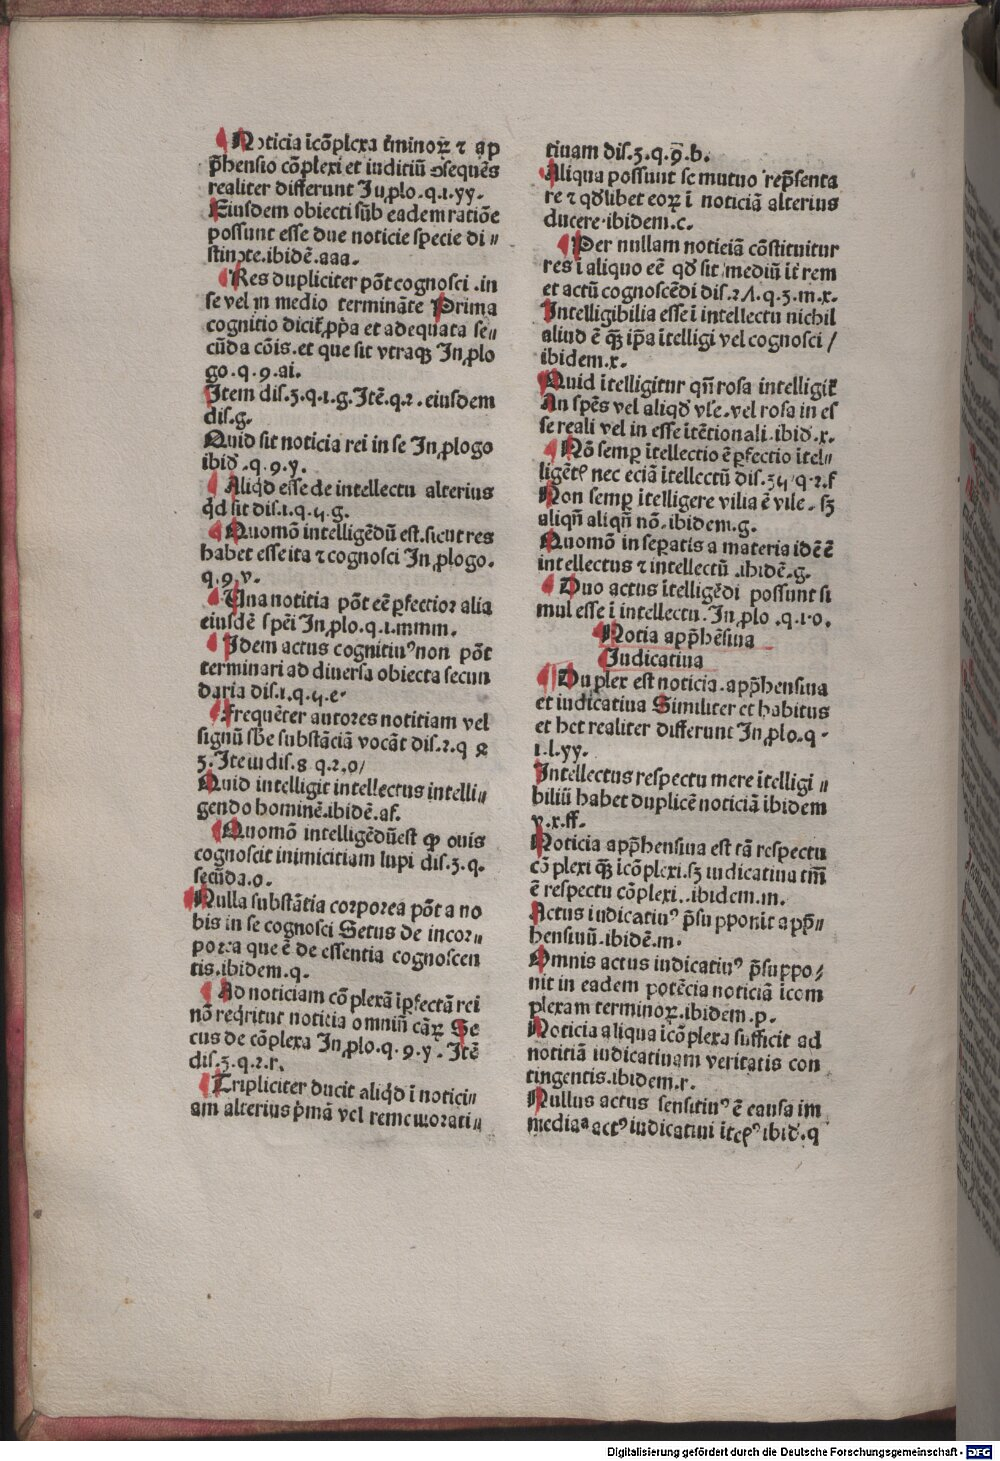 Noticia īcōplexa t̄minoꝝ ⁊ ap
p̄hensio cōplexi et iuditiū ↄsequēs
realiter differunt In ꝓlo.q.i.yy.
Eiusdem obiecti sūb eadem ratiōe
possunt esse due noticie specie di〃
stincte.ibidē.aaa.
Res dupliciter pōt cognosci.in
se vel in medio termināte Prima
cognitio dicit̄ ꝓpa et adequata se〃
cūda cōis.et que sit vtraqꝫ In ꝓlo
go.q.9.ai.
Item dis.3.q.1.g.Itē.q.2.eiusdem
dis.g.
Quid sit noticia rei in se In ꝓlogo
ibid̄.q.9.y.
Aliqd̄ esse de intellectu alterius
qd̄ sit dis.1.q.4.g.
Quomō intelligēdū est.sicut res
habet esse ita ⁊ cognosci In ꝓlogo.
q.9.v.
Una notitia pōt eē ꝑfectior alia
eiusdē spēi In ꝓlo.q.1.mmm.
Idem actus cognitiuꝰ non pōt
terminari ad diuersa obiecta secun
daria dis.1.q.4.e.
Frequēter autores notitiam vel
signū sbe substāciā vocāt dis.2.q 8
3.Item dis.8 q.2.o/
Quid intelligit intellectus intelli〃
gendo hominē.ibidē.af.
Quomō intelligēdū est ꝙ ouis
cognoscit inimicitiam lupi dis.3.q.
secūda.o.
Nulla substātia corporea pōt a no
bis in se cognosci Secus de incor〃
porea que ē de essentia cognoscen
tis.ibidem.q.
Ad noticiam cōplexā īꝑfectā rei
nō reqritur noticia omniū cāꝝ Se
cus de cōplexa In ꝓlo.q.9.y.Itē
dis.3.q.2.r.
Tripliciter ducit aliqd̄ ī notici〃
am alterius pmā vel rememorati〃
tiuam dis.3.q.9.b.
Aliqua possunt se mutuo rep̄senta
re ⁊ qdlibet eoꝝ ī noticiā alterius
ducere.ibidem.c.
Per nullam noticiā cōstituitur
res ī aliquo eē qd̄ sit mediū īt̄ rem
et actū cognoscēdi dis.27.q.3.m.x.
Intelligibilia esse ī intellectu nichil
aliud ē qꝫ ip̄a ītelligi vel cognosci /
ibidem.x.
Quid ītelligitur qn̄ rosa intelligit̄
An spēs vel aliqd̄ vle.vel rosa in es
se reali vel in esse ītētionali.ibid̄.x.
Nō semp ītellectio ē ꝑfectio ītel〃
ligētꝭ nec eciā ītellectū dis.34 q.2.f
Non semp ītelligere vilia ē vile.sꝫ
aliqn̄ aliqn̄ nō.ibidem.g.
Quomō in sepatis a materia idē ē
intellectus ⁊ intellectū.ibidē.g.
Duo actus ītelligēdi possunt si
mul esse ī intellectu.In ꝓlo.q.1.o.
Notia app̄hēsiua
Iudicatiua
Duplex est noticia.app̄hensiua
et iudicatiua Similiter et habitus
et het realiter differunt In ꝓlo.q.
1.l.yy.
Intellectus respectu mere ītelligi〃
biliū habet duplicē noticiā ibidem
v.x.ff.
Noticia app̄hensiua est tā respectu
cōplexi qꝫ īcōplexi.sꝫ iudicatiua tm̄
ē respectu cōplexi..ibidem.m.
Actus iudicatiuꝰ p̄supponit app̄〃
hensiuū.ibidē.m.
Omnis actus iudicatiuꝰ p̄suppo〃
nit in eadem potēcia noticiā īcom
plexam terminoꝝ.ibidem.p.
Noticia aliqua īcōplexa sufficit ad
notitiā iudicatiuam veritatis con
tingentis.ibidem.r.
Nullus actus sensitiuꝰ ē causa im
mediaᵃ actꝰ iudicatiui ibid̄.q